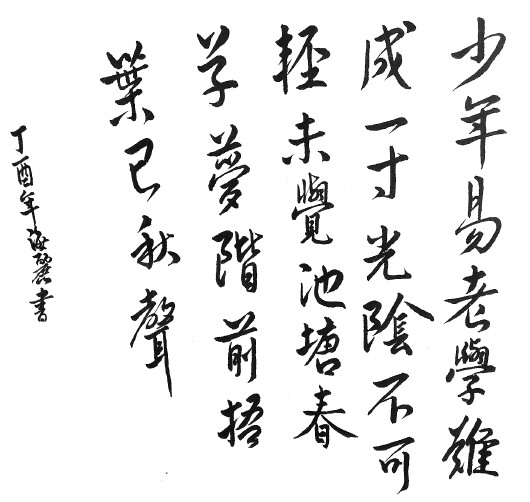 少年易老學難
成一寸光陰不可
輕未覺池塘春
草夢階前梧
葉已秋聲
丁酉年海麗書